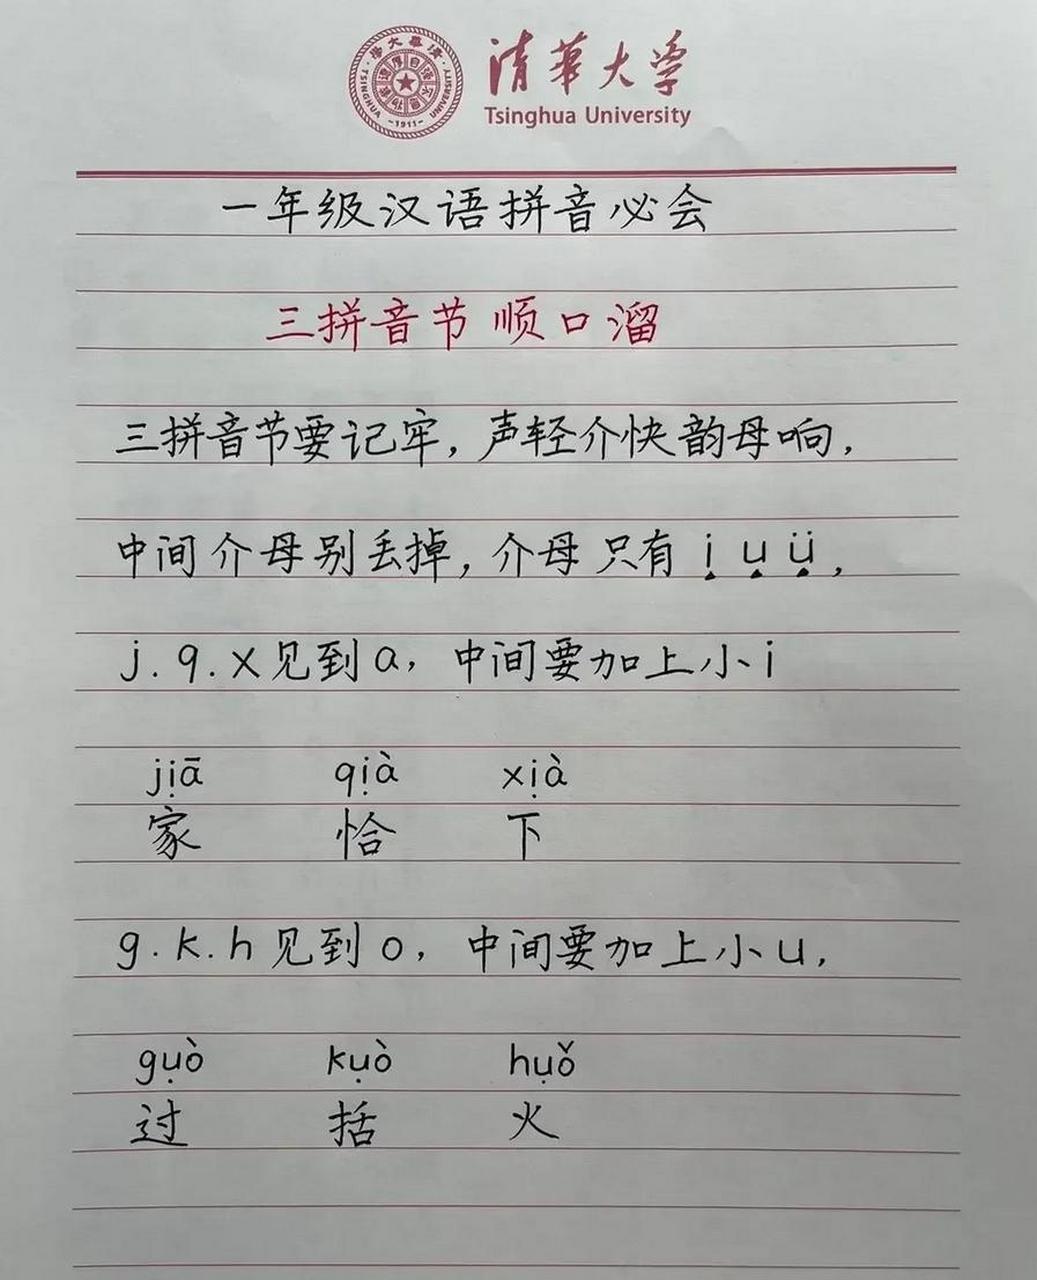 清華大学
Tsinghua University
一年级汉语拼音必会
三拼音节顺口溜
三拼音节要记牢，声轻介快韵母响，
中间介母别丢掉，介母只有 i u ü，
j.q.x见到a，中间要加上小i
jiā qià xià
家 恰 下
g.k.h见到o，中间要加上小u，
guò kuò huǒ
过 括 火